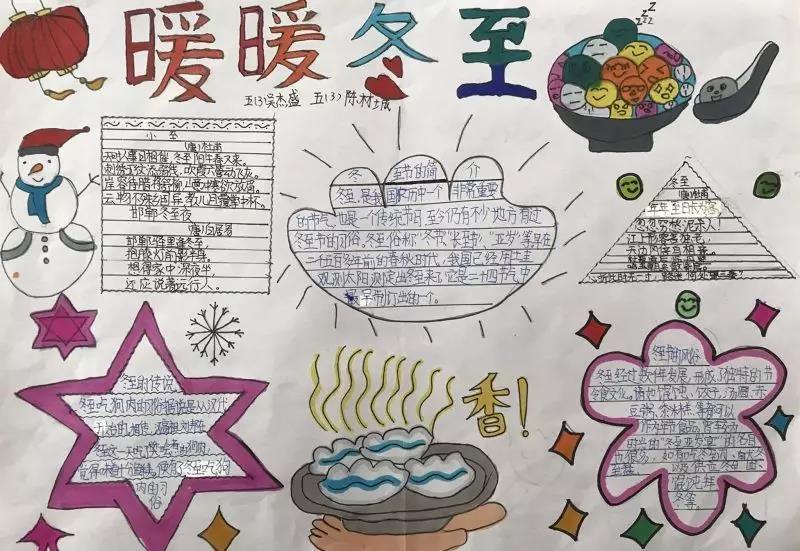 暖暖冬至
五(3)吴杰盛 五(3)陈林城
zzz
小至
(唐)杜甫
天时人事日相催,冬至阳生春又来。
岸容待腊将舒柳,山意冲寒欲放梅。
云物不殊乡国异,教儿且覆掌中杯。
邯郸冬至夜
(唐)白居易
邯郸驿里逢冬至,
抱膝灯前影伴身。
想得家中深夜坐,
还应说着远行人。
冬至节的简介
冬至,是我国农历中一个非常重要
的节气,也是一个传统节日,至今仍有不少地方有过
冬至节的习俗。冬至俗称"冬节""长至节"、"亚岁"等,早在
二千五百多年前的春秋时代,我国已经用土圭
观测太阳测定出冬至来了,它是二十四节气中
最早制订出的一个。
冬至
(唐)杜甫
年年至日长为客,
忽忽穷愁泥杀人!
江上形容吾独老,
冬至的传说
冬至吃狗肉的习俗据说是从汉代
开始的。相传,汉高祖刘邦在
冬至这一天吃了樊哙煮的狗肉,
觉得味道十分鲜美,
冬至吃狗
肉的习
俗
香!
冬至节的风俗
冬至经过数千年发展,形成了独特的节
令食文化。
馄饨、饺子、汤圆、赤
豆粥、黍米糕等都可
作为年节食品。
"冬至亚岁宴"的名目
也很多,如
馄饨拜
冬等。